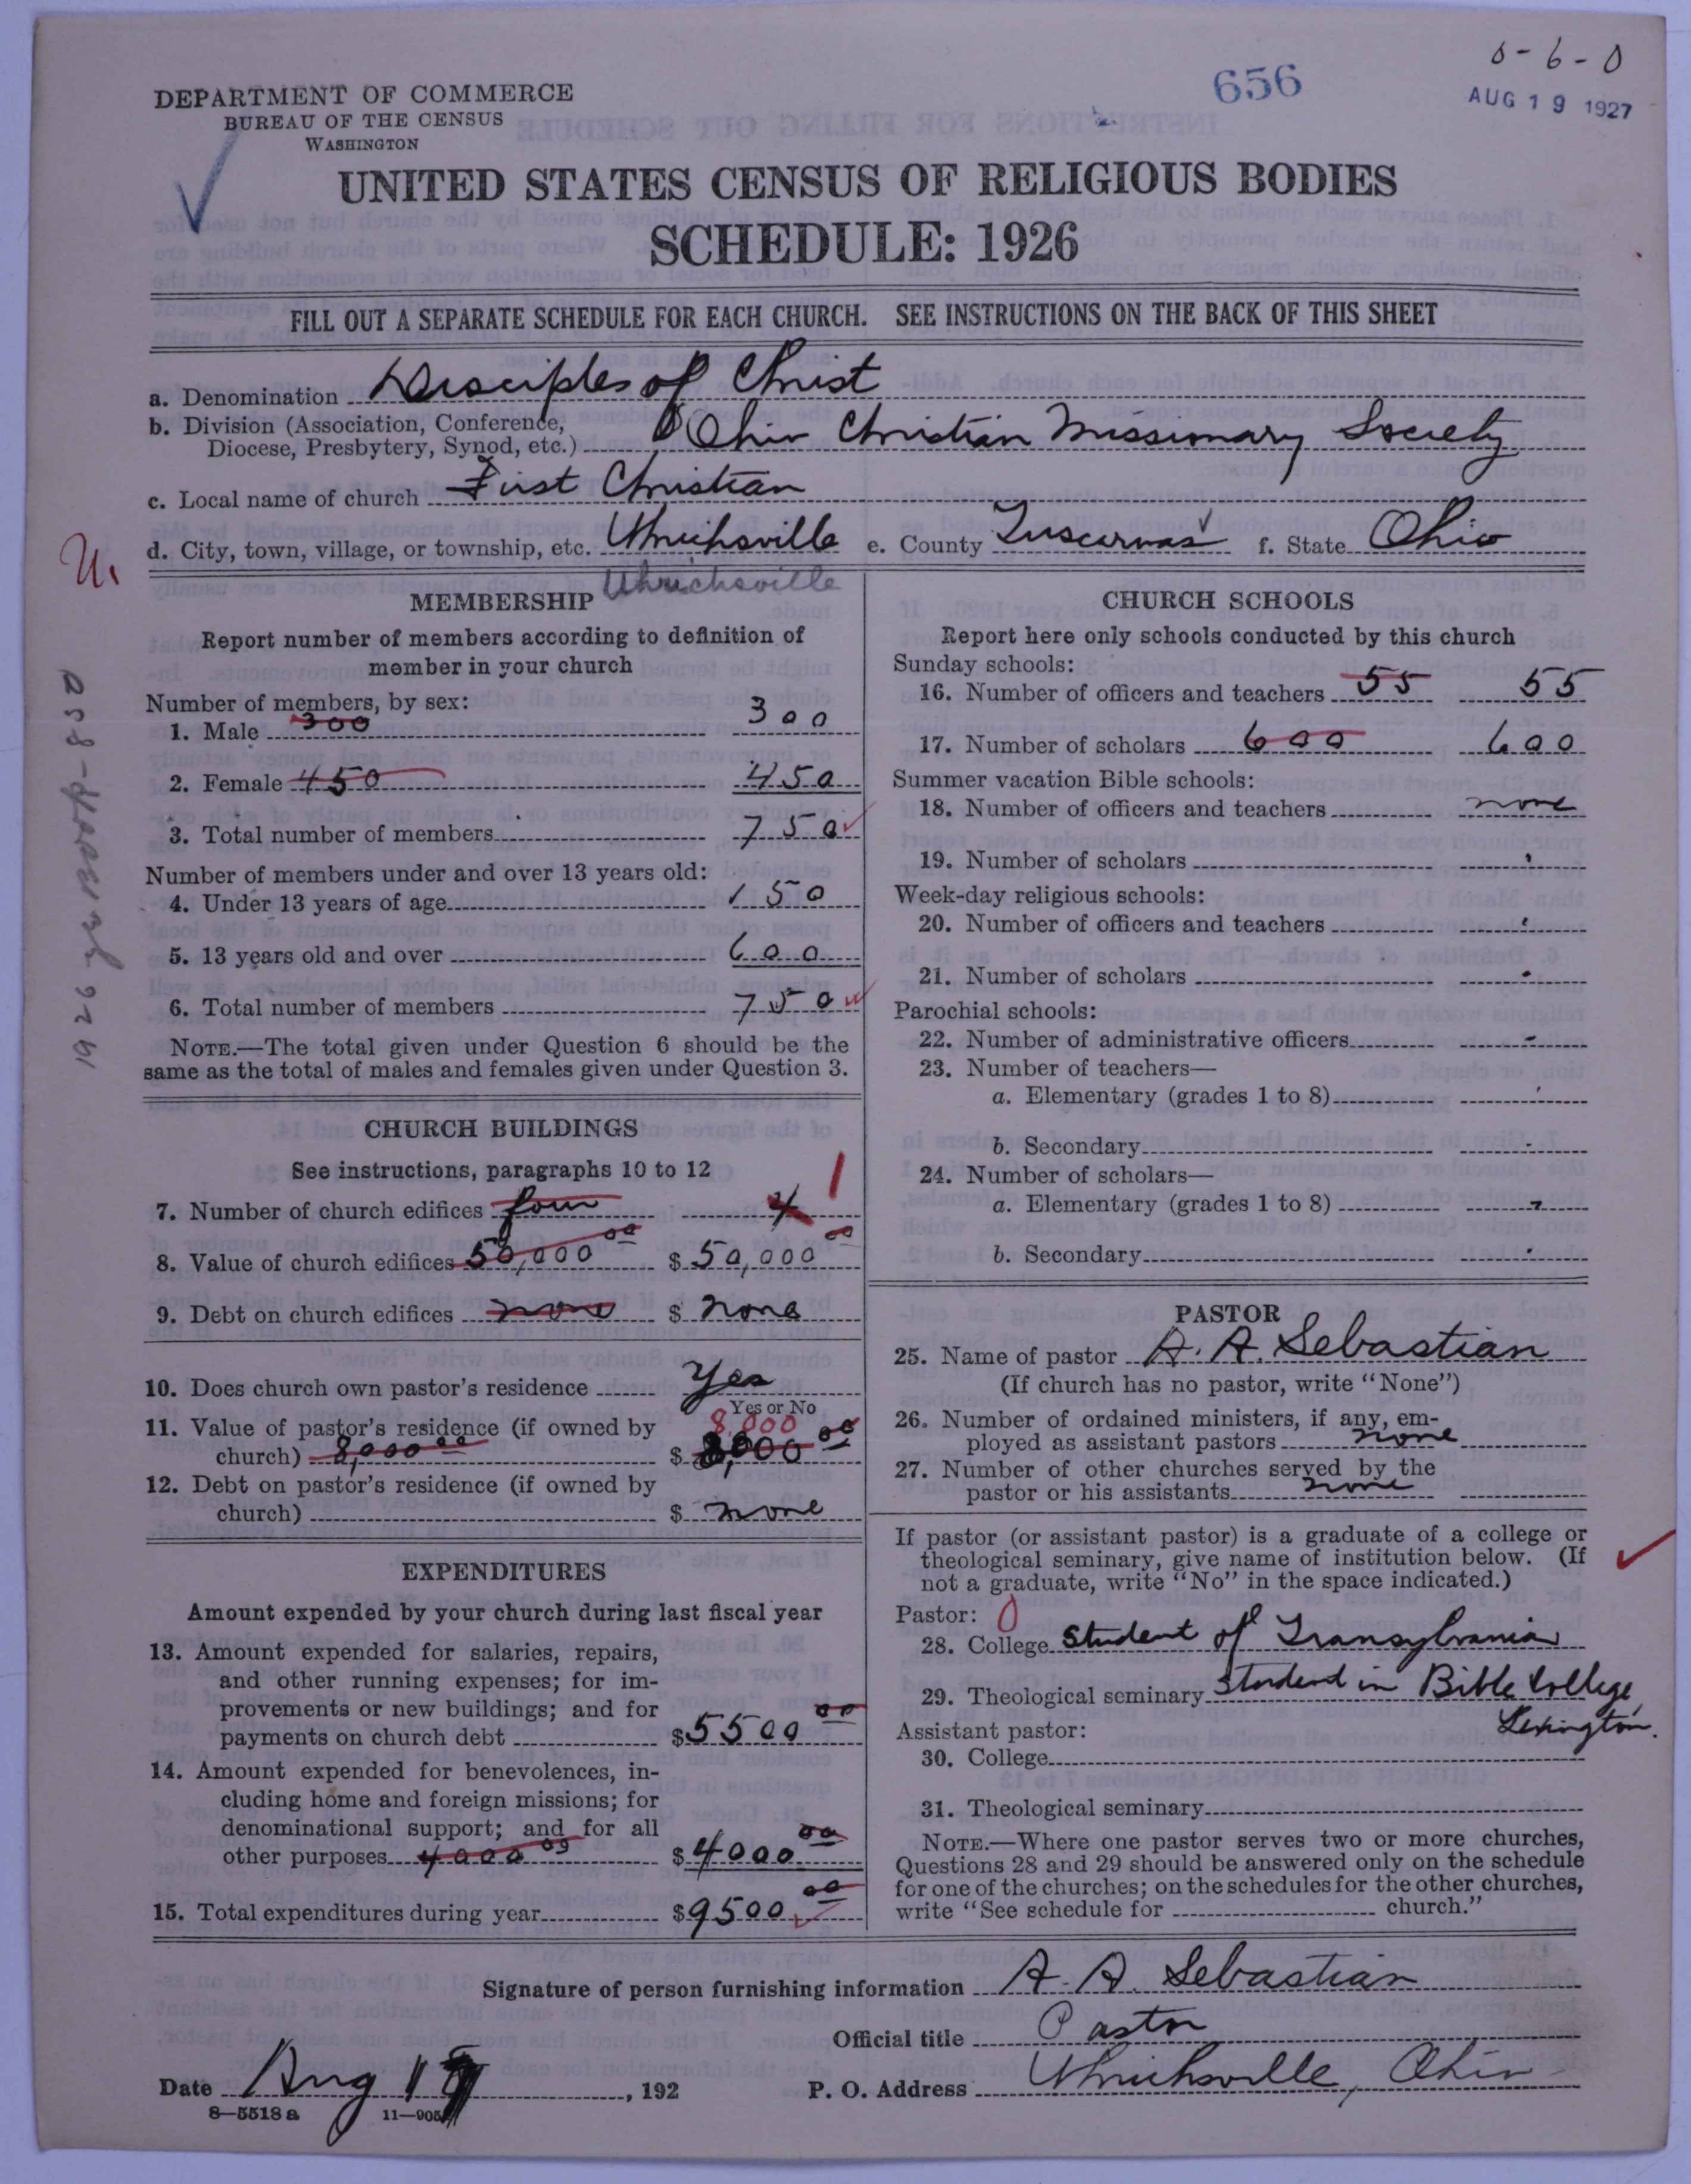 656
0-6-0
AUG 19 1927
DEPARTMENT OF COMMERCE
BUREAU OF THE CENSUS
WASHINGTON
UNITED STATES CENSUS OF RELIGIOUS BODIES
SCHEDULE: 1926
FILL OUT A SEPARATE SCHEDULE FOR EACH CHURCH. SEE INSTRUCTIONS ON THE BACK OF THIS SHEET
a. Denomination Disciples of Christ
b. Division (Association, Conference,
Diocese, Presbytery, Synod, etc.) Ohio Christian Missionary Society
c. Local name of church First Christian
d. City, town, village, or township, etc. Uhrichsville e. County Tuscarwas f. State Ohio
Uhrichsville
U.
MEMBERSHIP
Report number of members according to definition of
member in your church
Number of members, by sex:
1. Male 300 300
2. Female 450 450
3. Total number of members 750
Number of members under and over 13 years old:
4. Under 13 years of age 150
5. 13 years old and over 600
6. Total number of members 750
NOTE.—The total given under Question 6 should be the
same as the total of males and females given under Question 3.
1926 yr Book-850
CHURCH BUILDINGS
See instructions, paragraphs 10 to 12
7. Number of church edifices four 4 1
8. Value of church edifices 50,000 00 $ 50,000 00
9. Debt on church edifices none $ none
10. Does church own pastor's residence Yes
Yes or No
11. Value of pastor's residence (if owned by 8,000
church) 8,000 00 $ 8,000 00
12. Debt on pastor's residence (if owned by
church) $ none
EXPENDITURES
Amount expended by your church during last fiscal year
13. Amount expended for salaries, repairs,
and other running expenses; for im-
provements or new buildings; and for
payments on church debt $5500 00
14. Amount expended for benevolences, in-
cluding home and foreign missions; for
denominational support; and for all
other purposes 4000 00 $4000 00
15. Total expenditures during year $9500 00
CHURCH SCHOOLS
Report here only schools conducted by this church
Sunday schools:
16. Number of officers and teachers 55 55
17. Number of scholars 600 600
Summer vacation Bible schools:
18. Number of officers and teachers none
19. Number of scholars
Week-day religious schools:
20. Number of officers and teachers
21. Number of scholars -
Parochial schools:
22. Number of administrative officers -
23. Number of teachers—
a. Elementary (grades 1 to 8)
b. Secondary -
24. Number of scholars—
a. Elementary (grades 1 to 8) -
b. Secondary
PASTOR
25. Name of pastor A. A. Sebastian
(If church has no pastor, write "None")
26. Number of ordained ministers, if any, em-
ployed as assistant pastors none
27. Number of other churches served by the
pastor or his assistants none
If pastor (or assistant pastor) is a graduate of a college or
theological seminary, give name of institution below. (If
not a graduate, write "No" in the space indicated.)
Pastor: 0
28. College Student of Transylvania
29. Theological seminary Student in Bible College,
Lexington.
Assistant pastor:
30. College
31. Theological seminary
NOTE.—Where one pastor serves two or more churches,
Questions 28 and 29 should be answered only on the schedule
for one of the churches; on the schedules for the other churches,
write "See schedule for church."
Signature of person furnishing information A. A. Sebastian
Official title Pastor
Date Aug 17, 192 P. O. Address Uhrichsville, Ohio
8—5518 a 11—905